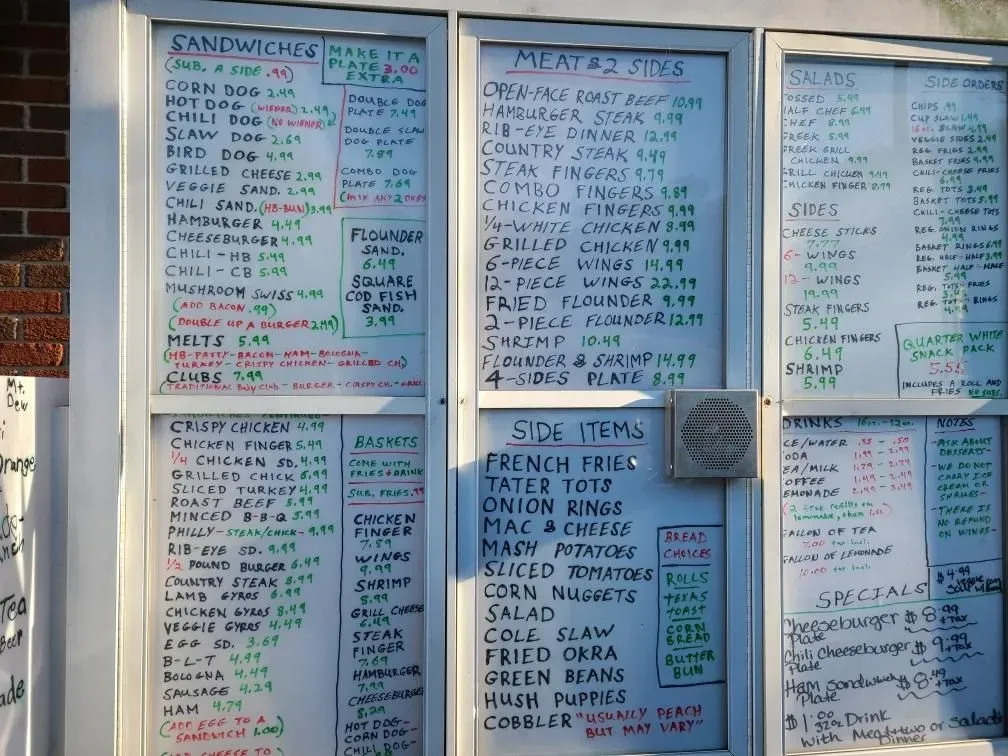 SANDWICHES
(SUB. A SIDE .99)
MAKE IT A
PLATE 3.00
EXTRA
CORN DOG 2.49
HOT DOG (WIENER) 2.49
CHILI DOG (NO WIENER)
SLAW DOG 2.69
BIRD DOG 4.99
GRILLED CHEESE 2.99
VEGGIE SAND. 2.99
CHILI SAND. (HB-BUN) 3.99
HAMBURGER 4.49
CHEESEBURGER 4.99
CHILI-HB 5.49
CHILI-CB 5.99
MUSHROOM SWISS 4.99
(ADD BACON .99)
(DOUBLE UP A BURGER 2.49)
MELTS 5.99
(HB-PATTY-BACON-HAM-BOLOGNA-
TURKEY-CRISPY CHICKEN-GRILLED CH.)
CLUBS 7.99
(TRADITIONAL CLUB-BURGER-CRISPY CH.-GRILL
DOUBLE DOG
PLATE 7.49
DOUBLE SLAW
DOG PLATE
7.89
COMBO DOG
PLATE 7.69
(MIX ANY 2 DOGS)
FLOUNDER
SAND.
6.49
SQUARE
COD FISH
SAND.
3.99
CRISPY CHICKEN 4.99
CHICKEN FINGER 5.49
1/4 CHICKEN SD. 4.99
GRILLED CHICK 6.99
SLICED TURKEY 4.99
ROAST BEEF 5.99
MINCED B-B-Q 5.99
PHILLY-STEAK/CHICK- 9.99
RIB-EYE SD. 9.99
1/2 POUND BURGER 6.49
COUNTRY STEAK 5.99
LAMB GYROS 6.99
CHICKEN GYROS 8.49
VEGGIE GYROS 4.49
EGG SD. 3.69
B-L-T 4.99
BOLOGNA 4.49
SAUSAGE 4.29
HAM 4.79
(ADD EGG TO A
SANDWICH 1.00)
CHEESE TO
BASKETS
COME WITH
FRIES & DRINK
SUB. FRIES .99
CHICKEN
FINGER
7.89
WINGS
9.99
SHRIMP
8.99
GRILL CHEESE
6.49
STEAK
FINGER
7.69
HAMBURGER
7.99
CHEESEBURGER
8.29
HOT DOG-
CORN DOG-
CHILI DOG-
MEAT & 2 SIDES
OPEN-FACE ROAST BEEF 10.99
HAMBURGER STEAK 9.99
RIB-EYE DINNER 12.99
COUNTRY STEAK 9.49
STEAK FINGERS 9.79
COMBO FINGERS 9.89
CHICKEN FINGERS 9.99
1/4-WHITE CHICKEN 8.99
GRILLED CHICKEN 9.99
6-PIECE WINGS 14.99
12-PIECE WINGS 22.99
FRIED FLOUNDER 9.99
2-PIECE FLOUNDER 12.99
SHRIMP 10.49
FLOUNDER & SHRIMP 14.99
4-SIDES PLATE 8.99
SIDE ITEMS
FRENCH FRIES
TATER TOTS
ONION RINGS
MAC & CHEESE
MASH POTATOES
SLICED TOMATOES
CORN NUGGETS
SALAD
COLE SLAW
FRIED OKRA
GREEN BEANS
HUSH PUPPIES
COBBLER "USUALLY PEACH
BUT MAY VARY"
BREAD
CHOICES
ROLLS
TEXAS
TOAST
CORN
BREAD
BUTTER
BUN
SALADS
OSSED 5.99
HALF CHEF 6.99
CHEF 8.99
REEK 5.99
REEK GRILL
CHICKEN 9.99
GRILL CHICKEN 9.49
CHICKEN FINGER 8.99
SIDES
CHEESE STICKS
7.77
6-WINGS
9.99
12-WINGS
19.99
STEAK FINGERS
5.49
CHICKEN FINGERS
6.49
SHRIMP
5.99
SIDE ORDERS
CHIPS .99
CUP SLAW 1.49
16 oz. SLAW 4.99
VEGGIE SIDES 2.49
REG. FRIES 2.99
BASKET FRIES 4.99
CHILI-CHEESE FRIES
6.99
REG. TOTS 3.49
BASKET TOTS 5.99
CHILI-CHEESE TOTS
7.99
REG. ONION RINGS
4.99
BASKET RINGS 6.99
REG. HALF-HALF 3.99
BASKET HALF-HALF
5.99
REG. TOTS-FRIES
REG. TOTS-RINGS
4.49
QUARTER WHITE
SNACK PACK
5.55
INCLUDES A ROLL AND
FRIES NO SUBS.
DRINKS 16oz.-32oz.
ICE/WATER .35 - .50
ODA 1.99 - 2.99
EA/MILK 1.79 - 2.79
OFFEE 1.49 - 2.49
EMONADE 2.49 - 3.49
(2 free refills on
lemonade, then 1.00)
GALLON OF TEA
7.00 tax incl.
GALLON OF LEMONADE
10.00 tax incl.
NOTES
-ASK ABOUT
DESSERTS-
-WE DO NOT
CARRY ICE
CREAM OR
SHAKES-
-THERE IS
NO REFUND
ON WINGS-
SPECIALS
$4.99
Veggie
Cheeseburger $8.99
Plate +TAX
Chili Cheeseburger $9.99
Plate +TAX
Ham Sandwich $8.49
Plate +TAX
$1.00
32oz Drink
with Meat+two or Salads
Dinner
Mt.
Dew
range
Tea
Beer
ade